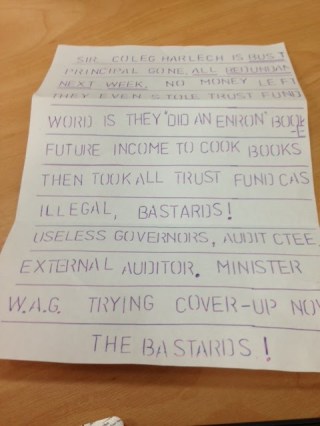 SIR. COLEG HARLECH IS BUST
PRINCIPAL GONE, ALL REDUNDAN
NEXT WEEK. NO MONEY LEFT
THEY EVEN STOLE TRUST FUND
WORD IS THEY "DID AN ENRON" BOOK-E
FUTURE INCOME TO COOK BOOKS
THEN TOOK ALL TRUST FUND CAS
ILLEGAL, BASTARDS!
USELESS GOVERNORS, AUDIT CTEE,
EXTERNAL AUDITOR. MINISTER
W.A.G. TRYING COVER-UP NOW
THE BASTARDS!